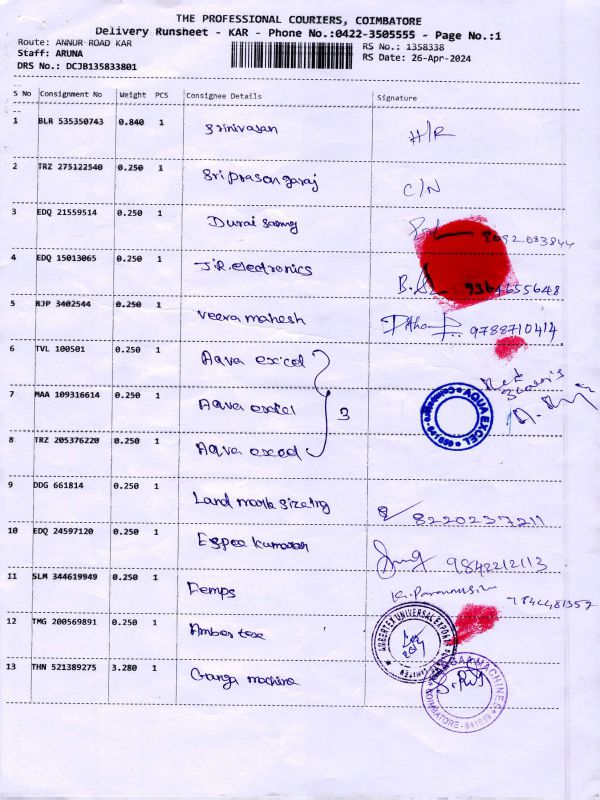 THE PROFESSIONAL COURIERS, COIMBATORE
Delivery Runsheet - KAR - Phone No.:0422-3505555 - Page No.:1
Route: ANNUR ROAD KAR
RS No.: 1358338
Staff: ARUNA
RS Date: 26-Apr-2024
DRS No.: DCJB135833801
S No Consignment No Weight PCS Consignee Details Signature
1 BLR 535350743 0.840 1 Srinivasan H/R
2 TRZ 275122540 0.250 1 Sri prasanna garaj C/N
3 EDQ 21559514 0.250 1 Durai samy 8092033844
4 EDQ 15013065 0.250 1 J.R. electronics 9364655648
5 RJP 3402544 0.250 1 Veera mahesh 9788710414
6 TVL 100501 0.250 1 Aqva excel
7 MAA 109316614 0.250 1 Aqva excel 3
AQUA EXCEL
8 TRZ 205376220 0.250 1 Aqva excel
9 DDG 661814 0.250 1 Land mark sizeing 8220237211
10 EDQ 24597120 0.250 1 Espee 9842212113
11 SLM 344619949 0.250 1 Demps
12 TMG 200569891 0.250 1 Amber tex
13 THN 521389275 3.280 1 Ganga machine
COIMBATORE